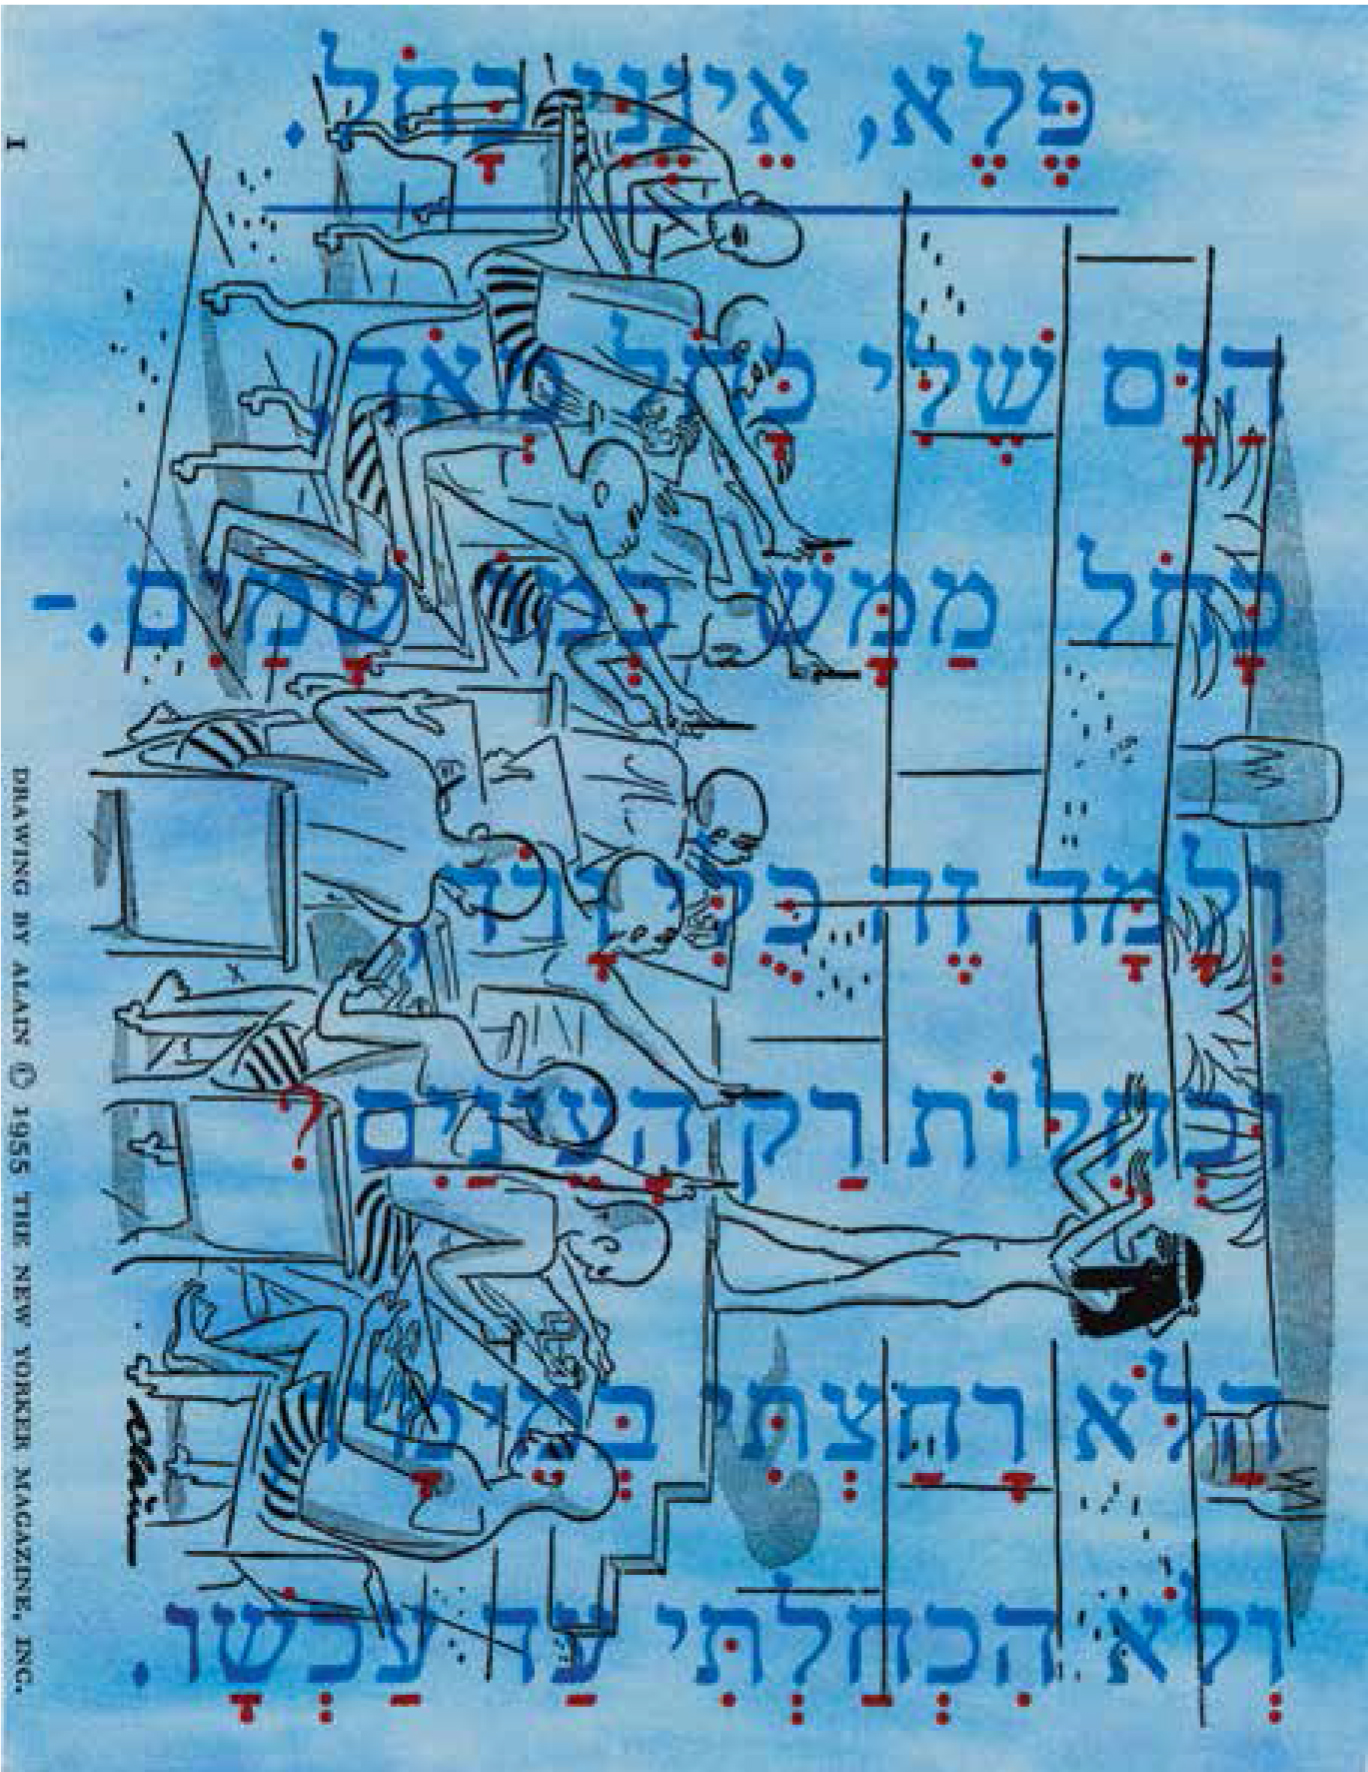 פֶּלֶא, אֵינֶנִּי כָּחֹל.
הַיָּם שֶׁלִּי כָּחֹל מְאֹד,
כָּחֹל מַמָּשׁ כְּמוֹ שָׁמַיִם. -
וְלָמָּה זֶה כֻּלִּי וָרֹד,
וּכְחֻלּוֹת רַק הָעֵינַיִם?
הֲלֹא רָחַצְתִּי בְּמֵימָיו
וְלֹא הִכְחַלְתִּי עַד עַכְשָׁו.
Alain
I DRAWING BY ALAIN © 1955 THE NEW YORKER MAGAZINE, INC.